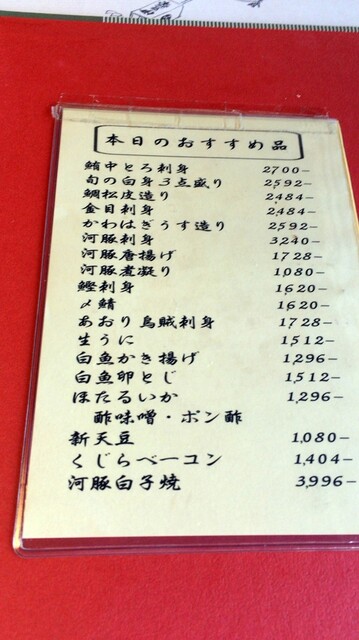 本日のおすすめ品
鮪中とろ刺身 2700-
旬の白身3点盛り 2,592-
鯛松皮造り 2,484-
金目刺身 2,484-
かわはぎうす造り 2592-
河豚刺身 3240-
河豚唐揚げ 1728-
河豚煮凝り 1,080-
鰹刺身 1620-
〆鯖 1620-
あおり烏賊刺身 1728-
生うに 1,512-
白魚かき揚げ 1,296-
白魚卵とじ 1,512-
ほたるいか 1,296-
酢味噌・ポン酢
新天豆 1,080-
くじらベーコン 1,404-
河豚白子焼 3,996-